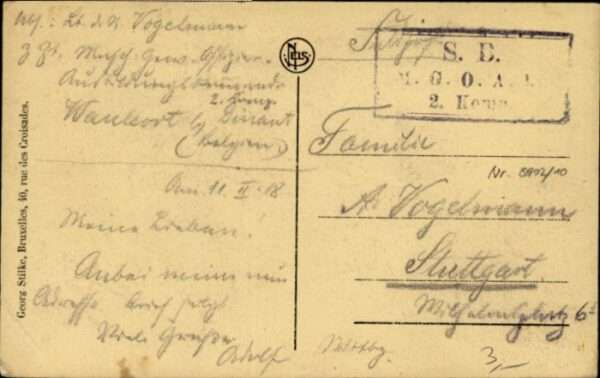 Abs: Lt. d. R. Vogelmann
z Zt. Masch. Gew. Offizier-
Ausbildungskommando
2. Komp.
Waulsort b/ Dinant
(Belgien)
Am. 11. II. 18
Meine Lieben!
Anbei meine neue
Adresse Brief folgt
Viele Grüße
Adolf
Georg Stilke, Bruxelles, 40, rue des Croisades.
NELS
Feldpost
S. B.
M. G. O. A. K.
2. Komp.
Familie
Nr. 8902/10
A. Vogelmann
Stuttgart
Wilhelmsplatz 6
Württbg.
3,-